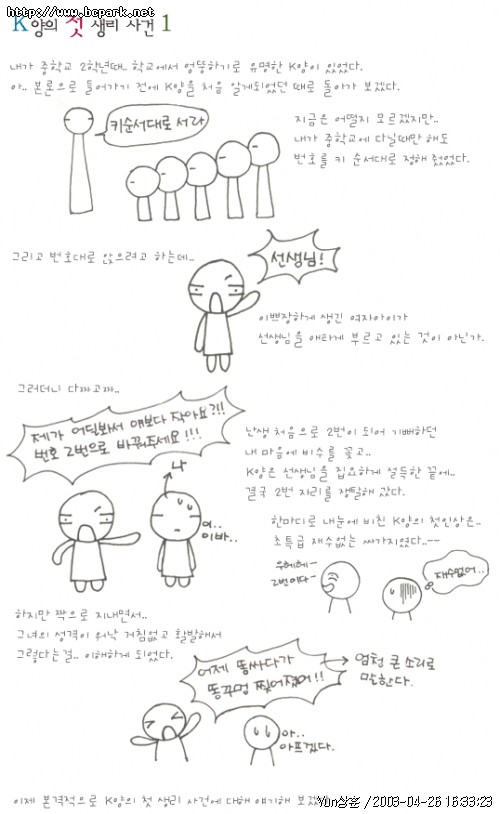 http://www.bcpark.net
K양의 첫 생리 사건 1
내가 중학교 2학년때.. 학교에서 엉뚱하기로 유명한 K양이 있었다.
아.. 본론으로 들어가기 전에 K양을 처음 알게되었던 때로 돌아가 보겠다.
키순서대로 서라
지금은 어떨지 모르겠지만..
내가 중학교에 다닐때만 해도
번호를 키 순서대로 정해 줬었다.
그리고 번호대로 앉으려고 하는데..
선생님!
이쁘장하게 생긴 여자아이가
선생님을 애타게 부르고 있는 것이 아닌가.
그러더니 다짜고짜..
제가 어딜봐서 얘보다 작아요?!!
번호 2번으로 바꿔주세요!!!
나
어..
이봐..
난생 처음으로 2번이 되어 기뻐하던
내 마음에 비수를 꽂고..
K양은 선생님을 집요하게 설득한 끝에..
결국 2번 자리를 쟁탈해 갔다.
한마디로 내눈에 비친 K양의 첫인상은..
초특급 재수없는 싸가지였다..--
우헤헤~
2번이다~
재수없어..
하지만 짝으로 지내면서..
그녀의 성격이 워낙 거침없고 활발해서
그렇다는걸.. 이해하게 되었다.
어제 똥싸다가
똥꾸멍 찢어졌어!!
엄청 큰 소리로
말한다.
아..
아프겠다.
이제 본격적으로 K양의 첫 생리 사건에 대해 얘기해 보겠다.
/ 2003-04-26 16:33:23